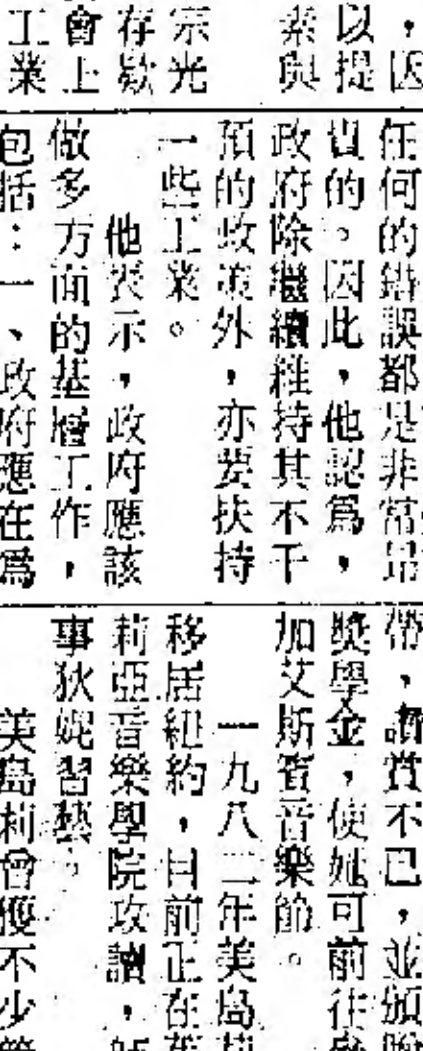 ，因
以提
素與
宗光
存款
會上
工業
任何的錯誤都是非常昂
貴的。因此，他認爲，
政府除繼續維持其不干
預的政策外，亦要扶持
一些工業。
他表示，政府應該
做多方面的基層工作，
包括：一、政府應在爲
帶，讚賞不已，並頒贈
獎學金，使她可前往參
加艾斯賓音樂節。
一九八二年美島莉
移居紐約，目前正在茱
莉亞音樂學院攻讀，
事狄妮習藝。
美島莉曾獲不少